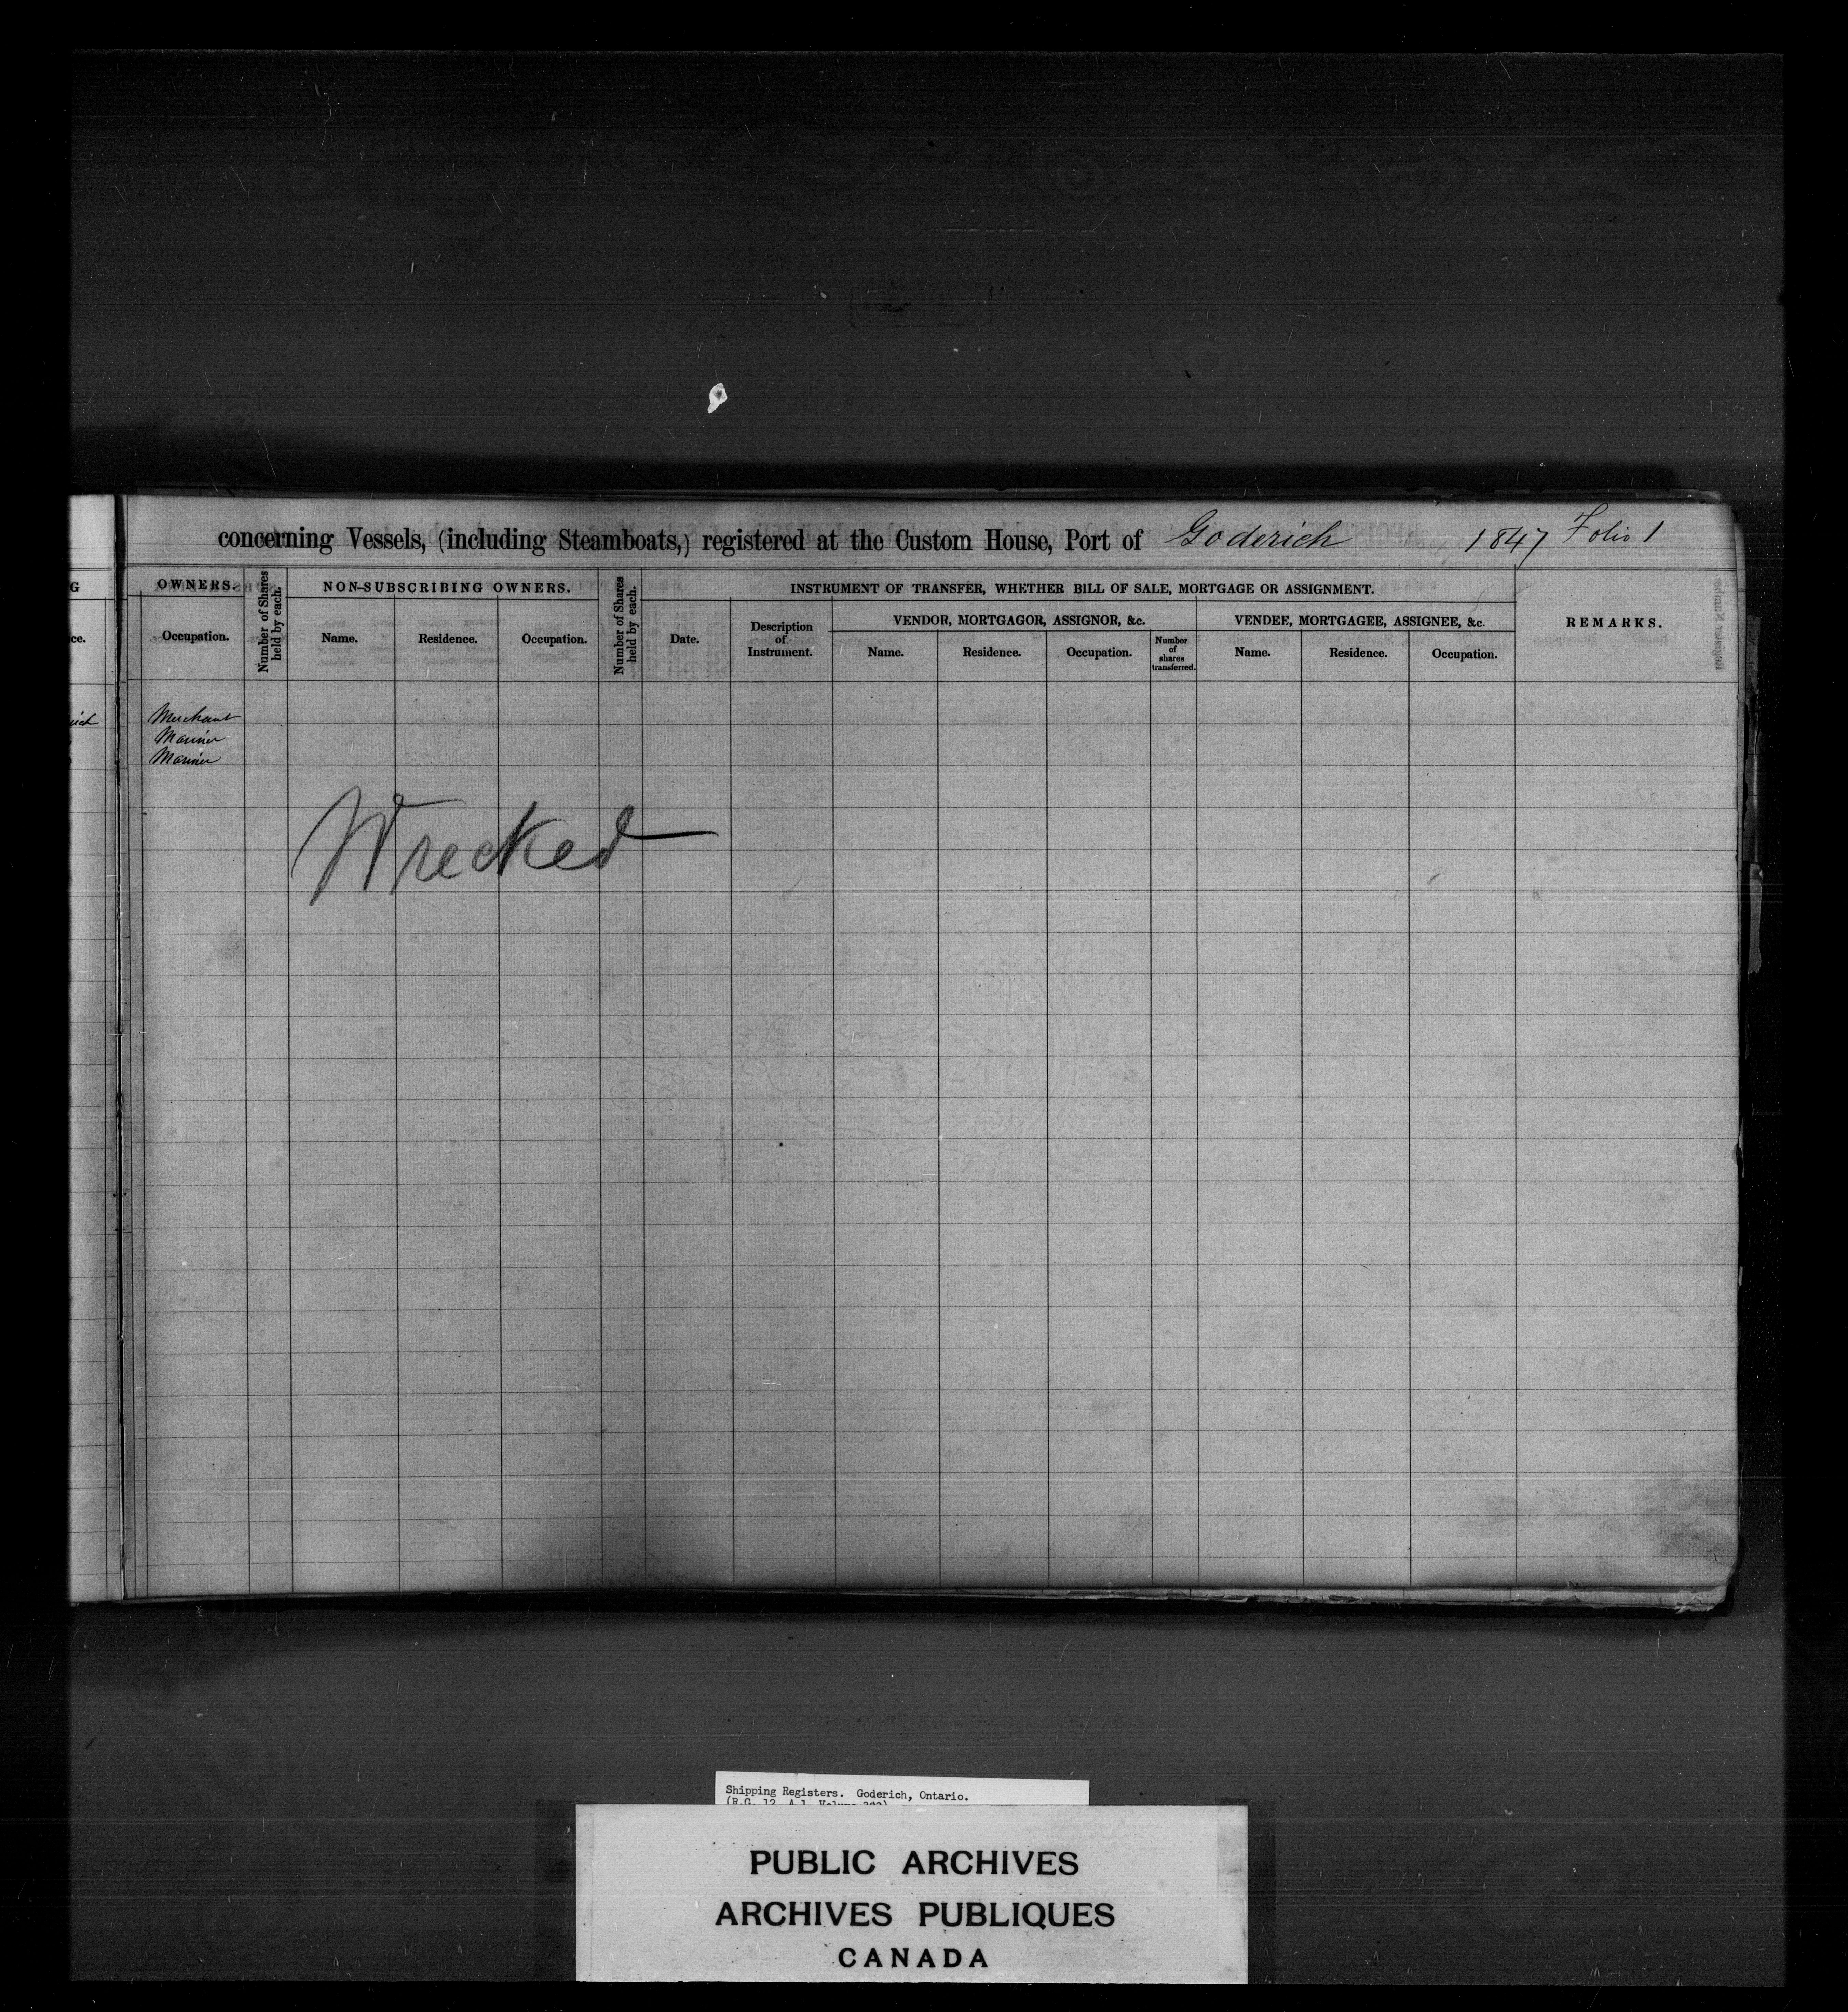 concerning Vessels, (including Steamboats,) registered at the Custom House, Port of Goderich 1847 Folio 1
OWNERS.
Occupation.
Number of Shares held by each.
NON-SUBSCRIBING OWNERS.
Name. Residence. Occupation.
Number of Shares held by each.
INSTRUMENT OF TRANSFER, WHETHER BILL OF SALE, MORTGAGE OR ASSIGNMENT.
Date.
Description
of
Instrument.
VENDOR, MORTGAGOR, ASSIGNOR, &c.
Name. Residence. Occupation.
Number
of
shares
transferred.
VENDEE, MORTGAGEE, ASSIGNEE, &c.
Name. Residence. Occupation.
REMARKS.
Merchant
Mariner
Mariner
Wrecked
Shipping Registers. Goderich, Ontario.
PUBLIC ARCHIVES
ARCHIVES PUBLIQUES
CANADA